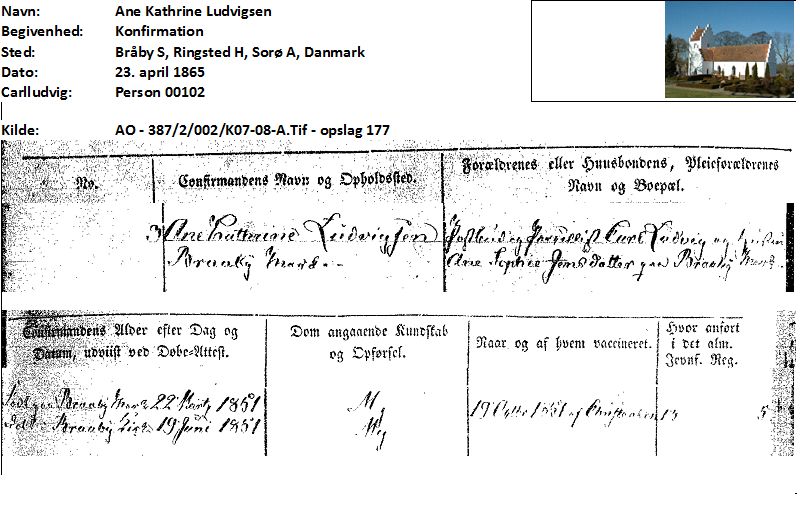 Navn: Ane Kathrine Ludvigsen
Begivenhed: Konfirmation
Sted: Bråby S, Ringsted H, Sorø A, Danmark
Dato: 23. april 1865
Carlludvig: Person 00102
Kilde: AO - 387/2/002/K07-08-A.Tif - opslag 177
No.
Confirmandens Navn og Opholdssted.
Forældrenes eller Huusbondens, Pleieforældrenes
Navn og Boepæl.
3
Ane Kathrine Ludvigsen
Braaby Mark
Carl Ludvig og
Ane Sophie Jensdatter paa Braaby Mark
Confirmandens Alder efter Dag og
Datum, udviist ved Døbe-Attest.
Dom angaaende Kundskab
og Opførsel.
Naar og af hvem vaccineret.
Hvor anført
i det alm.
Jevnf. Reg.
Født paa Braaby Mark 22 Marts 1851
Døbt Braaby Kirke 19 Juni 1851
Mg
Mg
19 1851 af Christensen
5